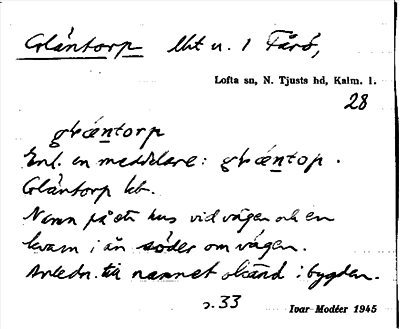 Gläntorp lht u. 1 Fårö,
Lofta sn, N. Tjusts hd, Kalm. l.
28
glæntorp
Enl. en meddelare: glæntop.
Gläntorp kb.
Namn på ett hus vid vägen och en
kvarn i ån söder om vägen.
Anledn. till namnet okänd i bygden.
s. 33
Ivar Modéer 1945